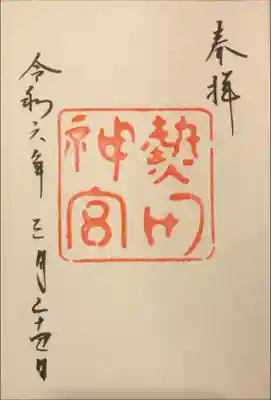 奉拝
熱田
神宮
令和六年 三月二十四日